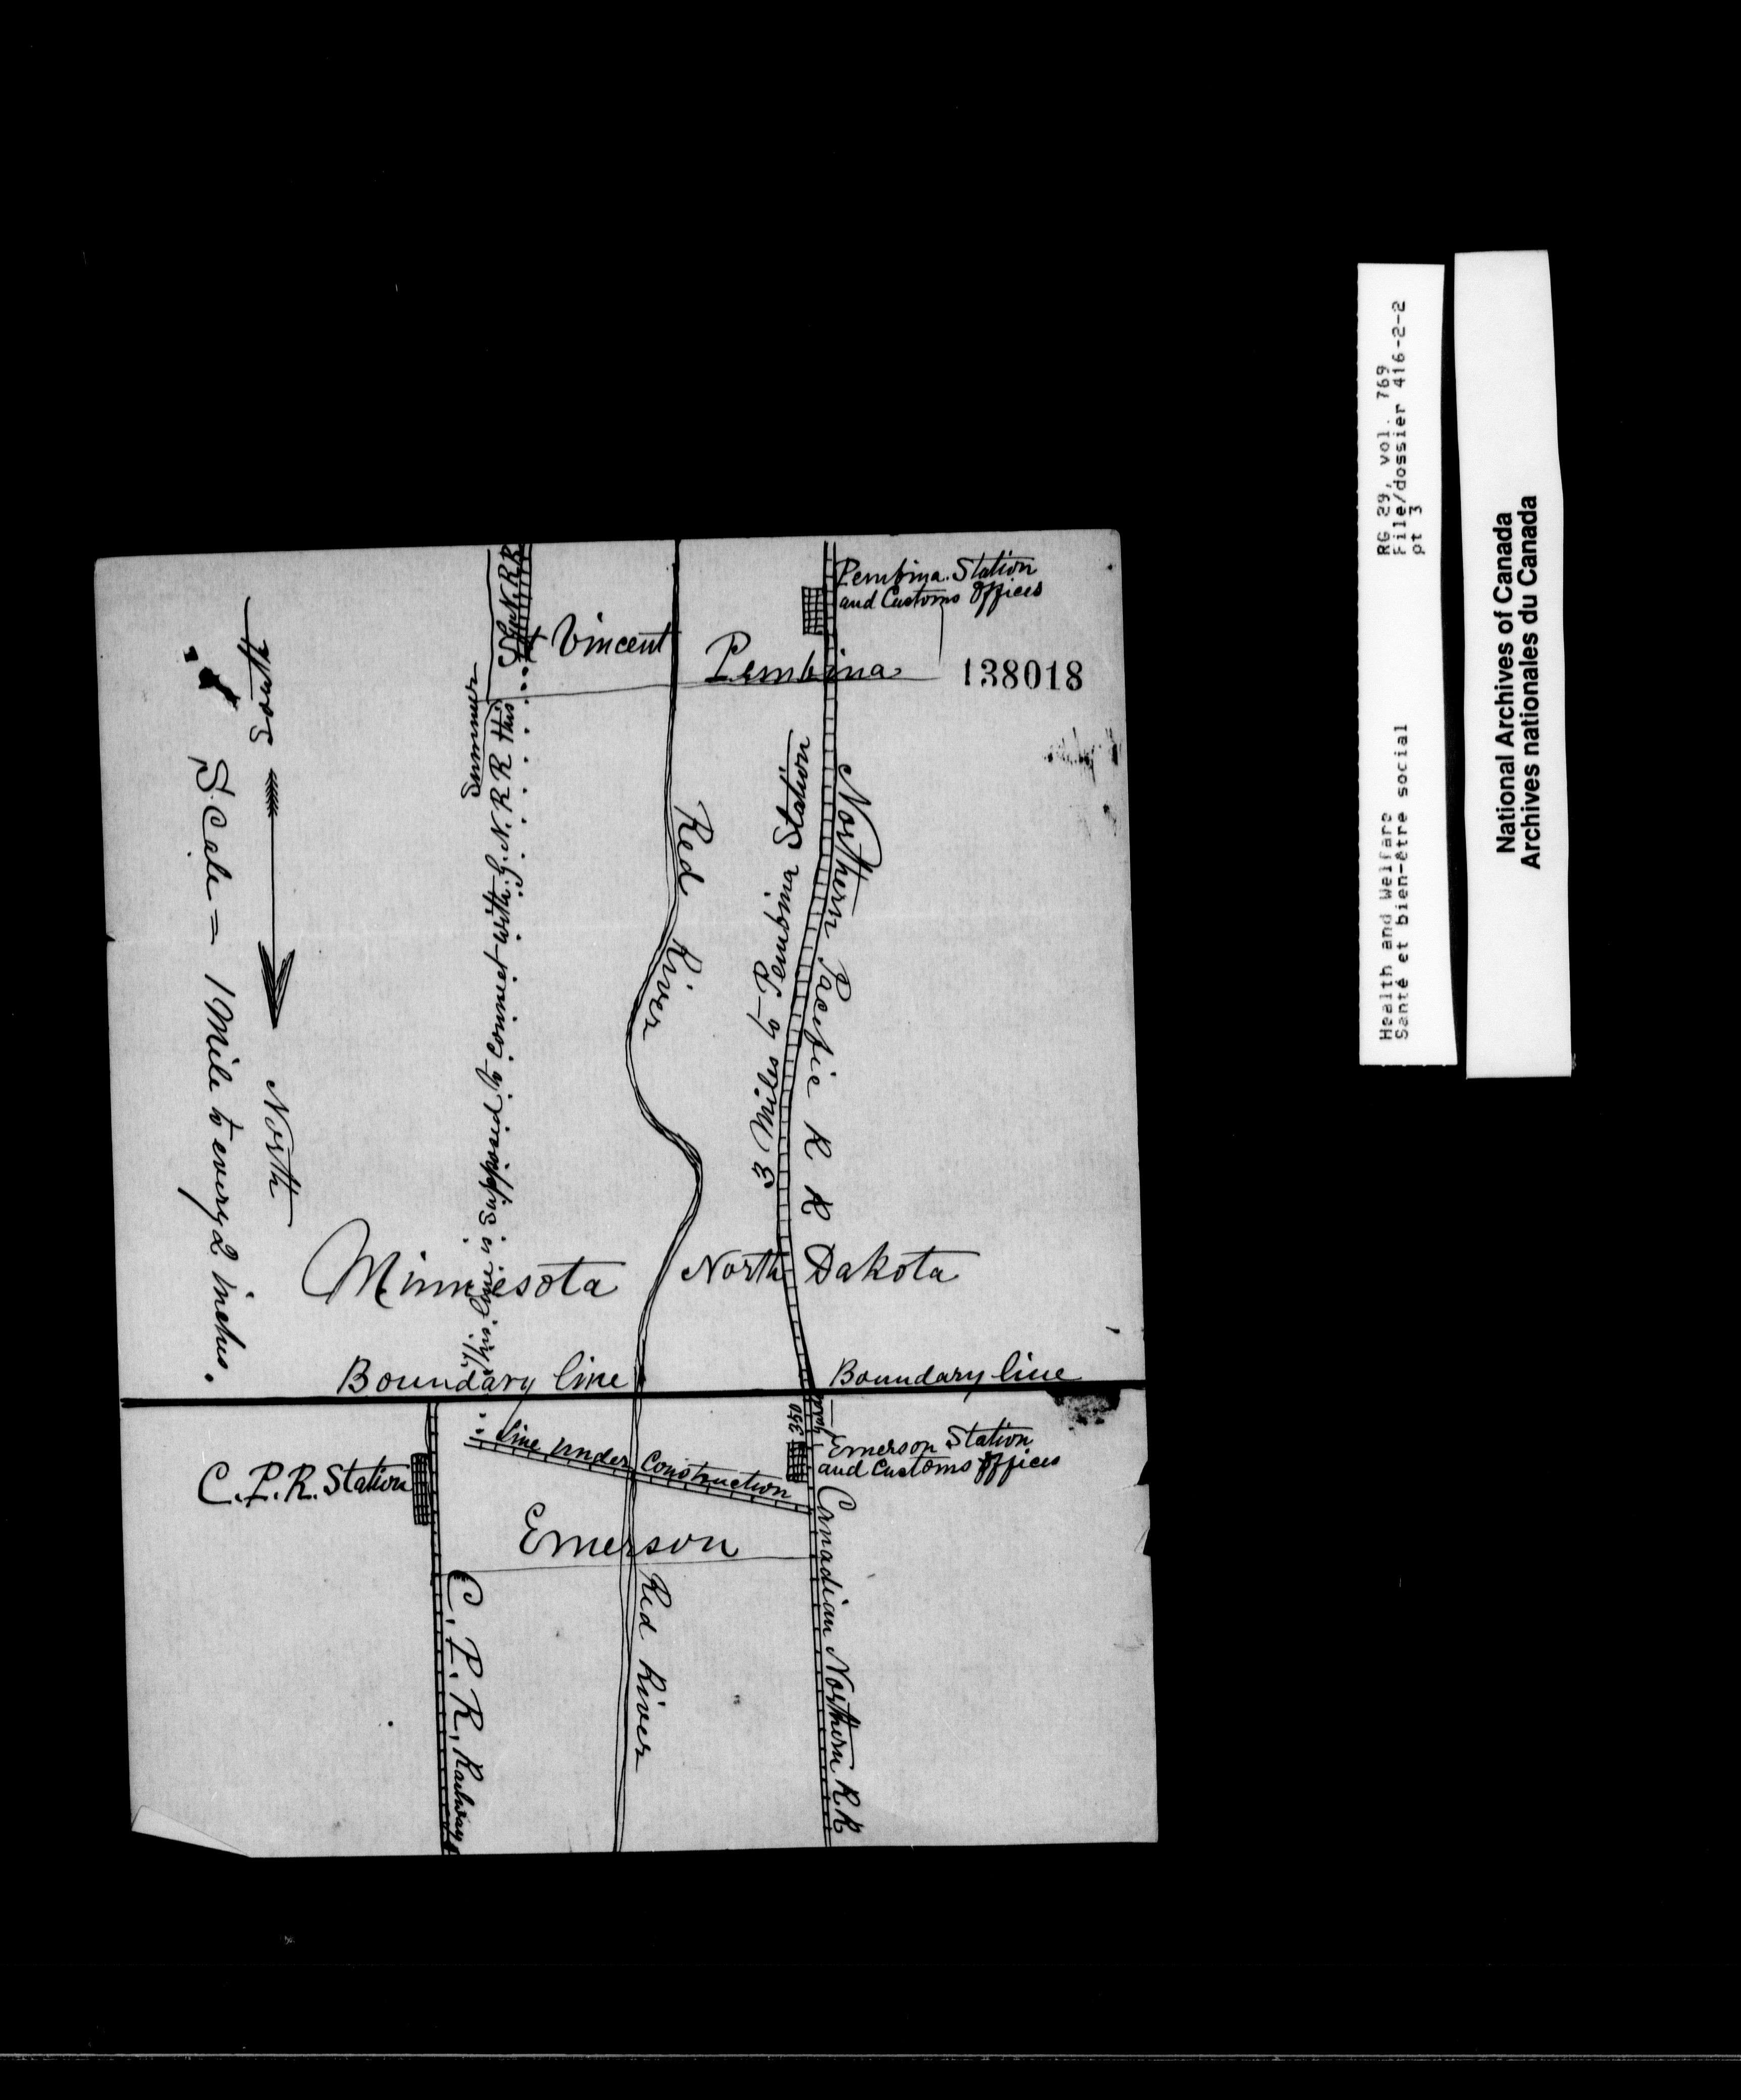 G. N. R R
St Vincent
Pembina
Pembina Station
and Customs Offices
138018
South
North
Scale = 1 Mile to every 2 inches.
This line is supposed to connect with G. N. R R this
Summer
Red River
3 Miles to Pembina Station
Northern Pacific R R
Minnesota
North Dakota
Boundary line
Boundary line
350
yards
C. P. R. Station
Line under Construction
Emerson Station
and Customs Offices
Emerson
C. P. R. Railway
Red River
Canadian Northern R.R
RG 29, vol. 769
File/dossier 416-2-2
pt 3
Health and Welfare
Santé et bien-être social
National Archives of Canada
Archives nationales du Canada